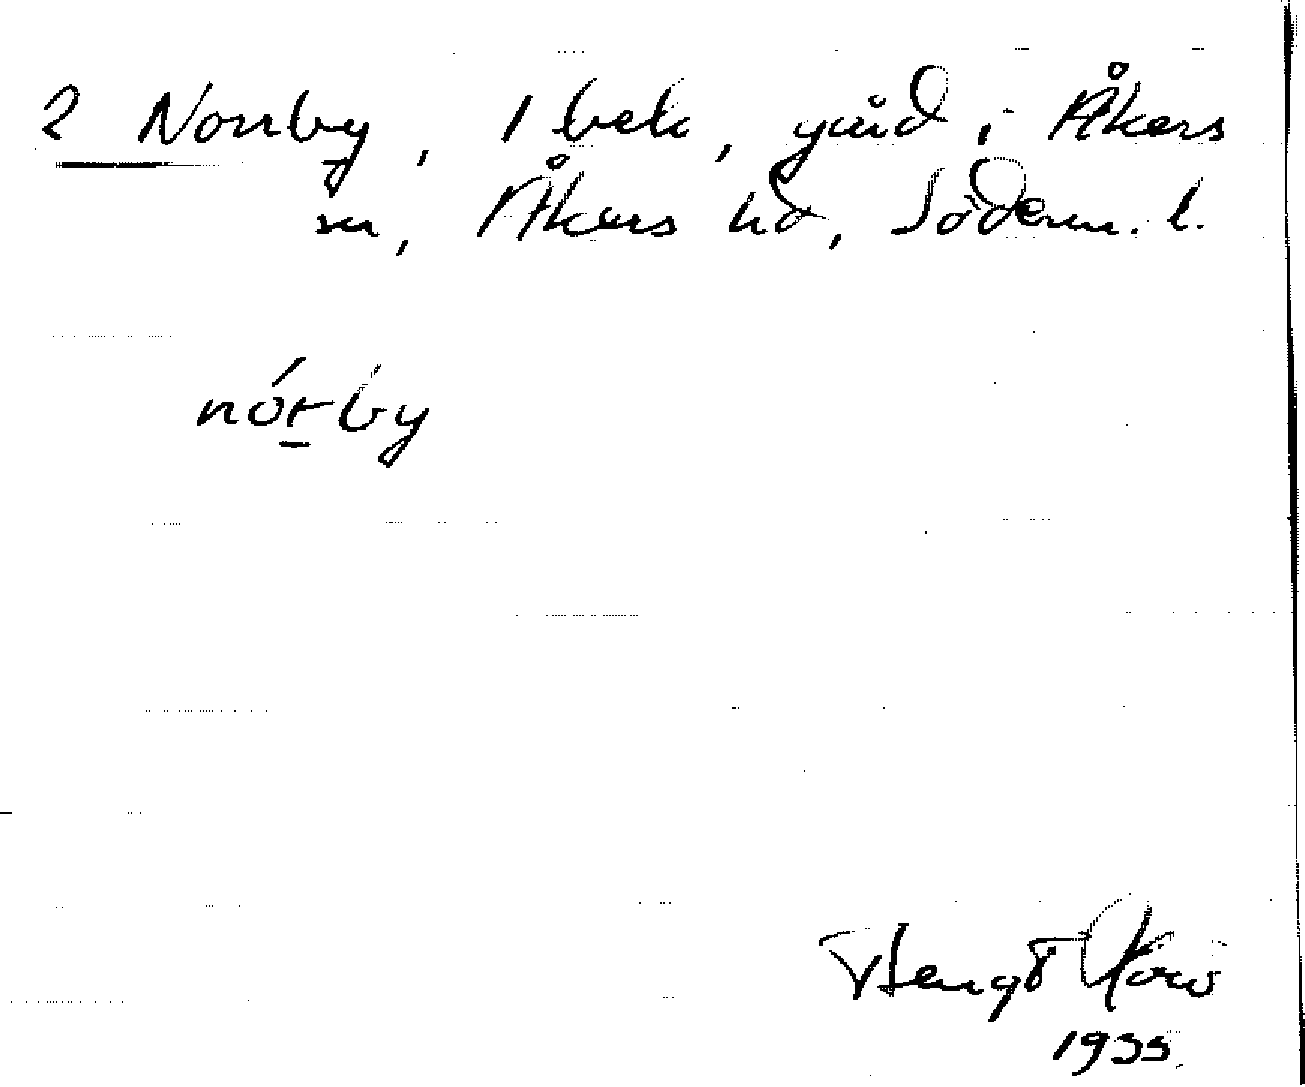 2 Norrby, 1 bek, gård i Åkers
sn, Åkers hd, Söderm. l.
nórby
Bengt
1955